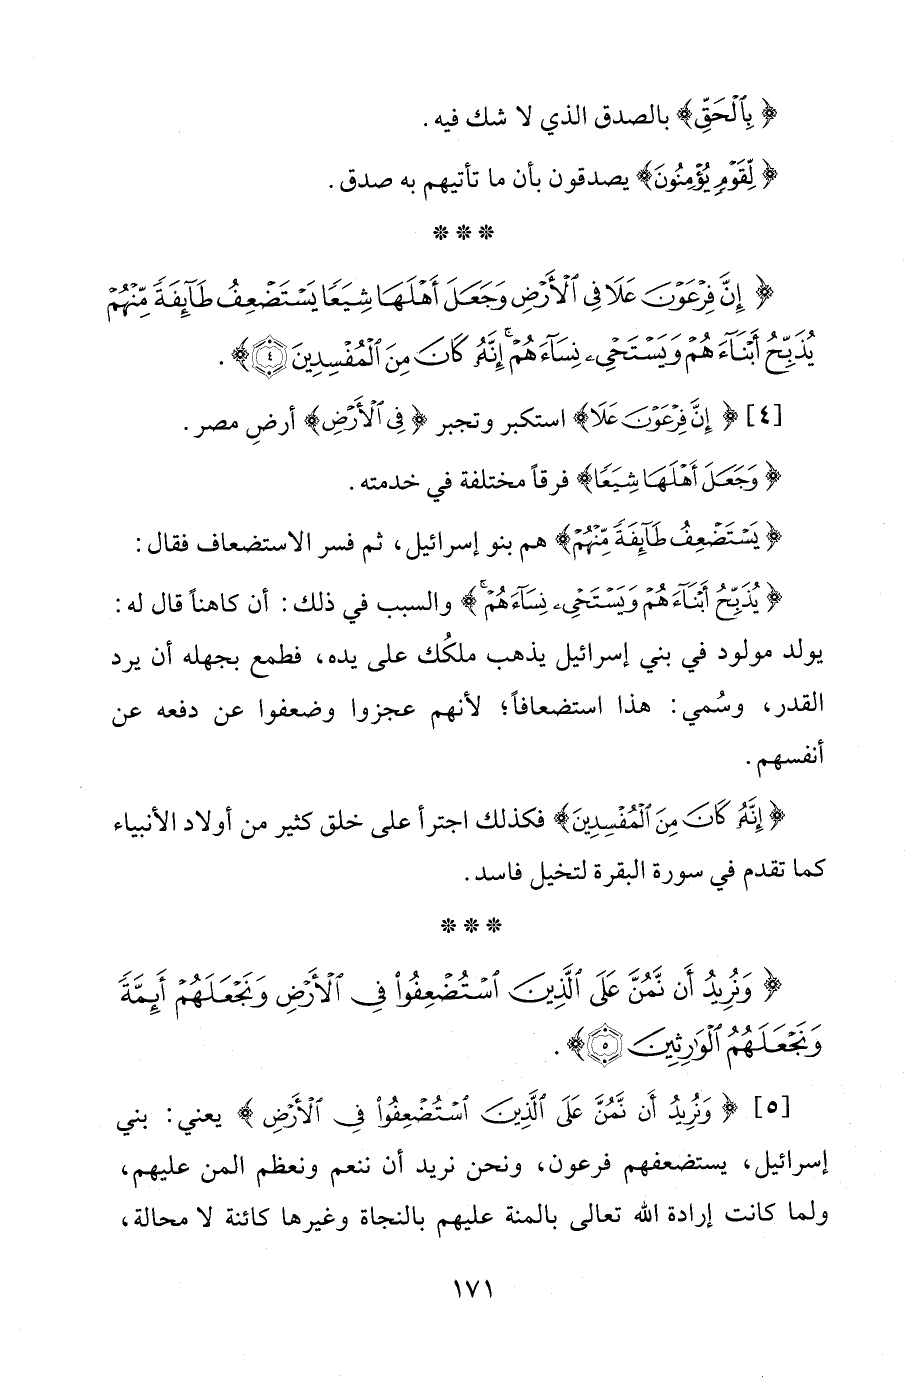 ﴿ بِٱلْحَقِّ﴾ بالصدق الذي لا شك فيه .
﴿ لِقَوْمٍ يُؤْمِنُونَ﴾ يصدقون بأن ما تأتيهم به صدق .
* * *
﴿ إِنَّ فِرْعَوْنَ عَلَا فِى ٱلْأَرْضِ وَجَعَلَ أَهْلَهَا شِيَعًا يَسْتَضْعِفُ طَآئِفَةً مِّنْهُمْ
يُذَبِّحُ أَبْنَآءَهُمْ وَيَسْتَحْىِۦ نِسَآءَهُمْ ۚ إِنَّهُۥ كَانَ مِنَ ٱلْمُفْسِدِينَ ٤﴾ .
[٤] ﴿ إِنَّ فِرْعَوْنَ عَلَا﴾ استكبر وتجبر ﴿ فِى ٱلْأَرْضِ﴾ أرضِ مصر .
﴿ وَجَعَلَ أَهْلَهَا شِيَعًا﴾ فرقاً مختلفة في خدمته .
﴿ يَسْتَضْعِفُ طَآئِفَةً مِّنْهُمْ﴾ هم بنو إسرائيل، ثم فسر الاستضعاف فقال :
﴿ يُذَبِّحُ أَبْنَآءَهُمْ وَيَسْتَحْىِۦ نِسَآءَهُمْ ۚ﴾ والسبب في ذلك : أن كاهناً قال له :
يولد مولود في بني إسرائيل يذهب ملكُك على يده، فطمع بجهله أن يرد
القدر، وسُمي : هذا استضعافاً؛ لأنهم عجزوا وضعفوا عن دفعه عن
أنفسهم .
﴿ إِنَّهُۥ كَانَ مِنَ ٱلْمُفْسِدِينَ﴾ فكذلك اجترأ على خلق كثير من أولاد الأنبياء
كما تقدم في سورة البقرة لتخيل فاسد .
* * *
﴿ وَنُرِيدُ أَن نَّمُنَّ عَلَى ٱلَّذِينَ ٱسْتُضْعِفُوا۟ فِى ٱلْأَرْضِ وَنَجْعَلَهُمْ أَئِمَّةً
وَنَجْعَلَهُمُ ٱلْوَٰرِثِينَ ٥﴾ .
[٥] ﴿ وَنُرِيدُ أَن نَّمُنَّ عَلَى ٱلَّذِينَ ٱسْتُضْعِفُوا۟ فِى ٱلْأَرْضِ ﴾ يعني : بني
إسرائيل، يستضعفهم فرعون، ونحن نريد أن ننعم ونعظم المن عليهم،
ولما كانت إرادة الله تعالى بالمنة عليهم بالنجاة وغيرها كائنة لا محالة،
١٧١